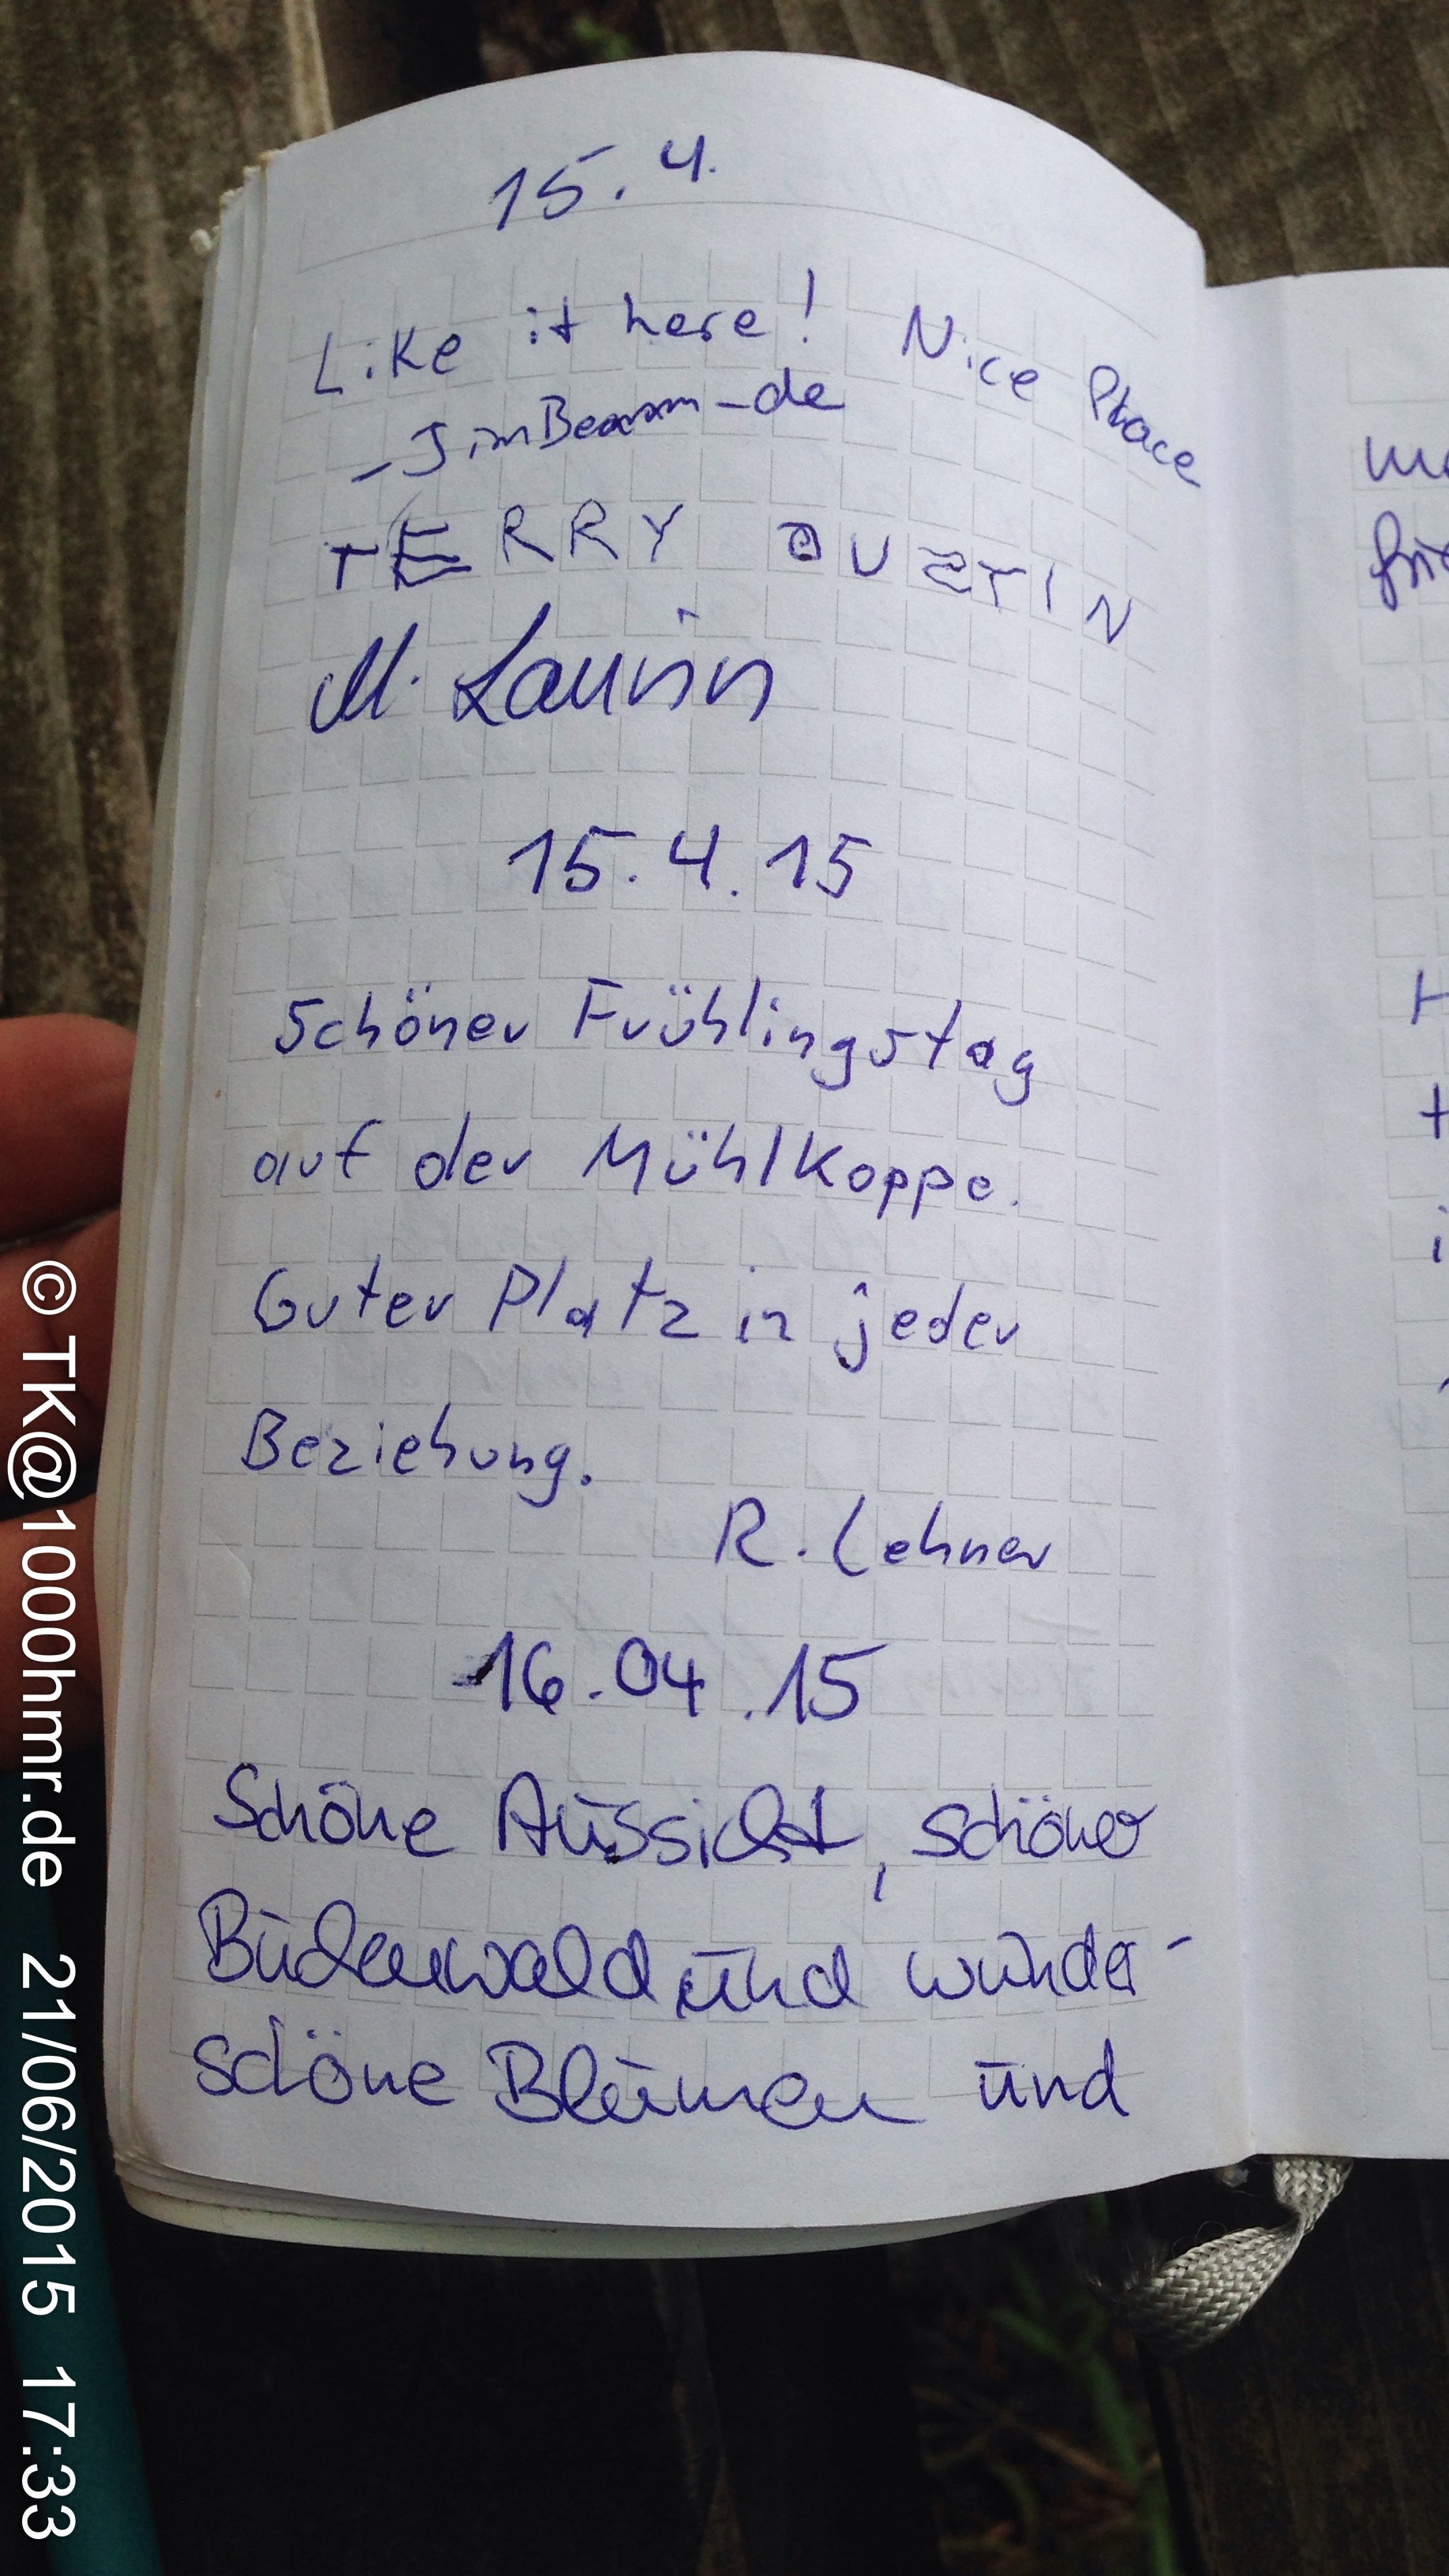 15.4.
Like it here! Nice Place
- JimBeamm_de
TERRY
M. Laurin
15.4.15
Schöner Frühlingstag
auf der Mühlkoppe.
Guter Platz in jeder
Beziehung.
R. Lehner
16.04.15
Schöne Aussicht, schöner
und wunder-
schöne Blumen und
© TK@1000hmr.de 21/06/2015 17:33